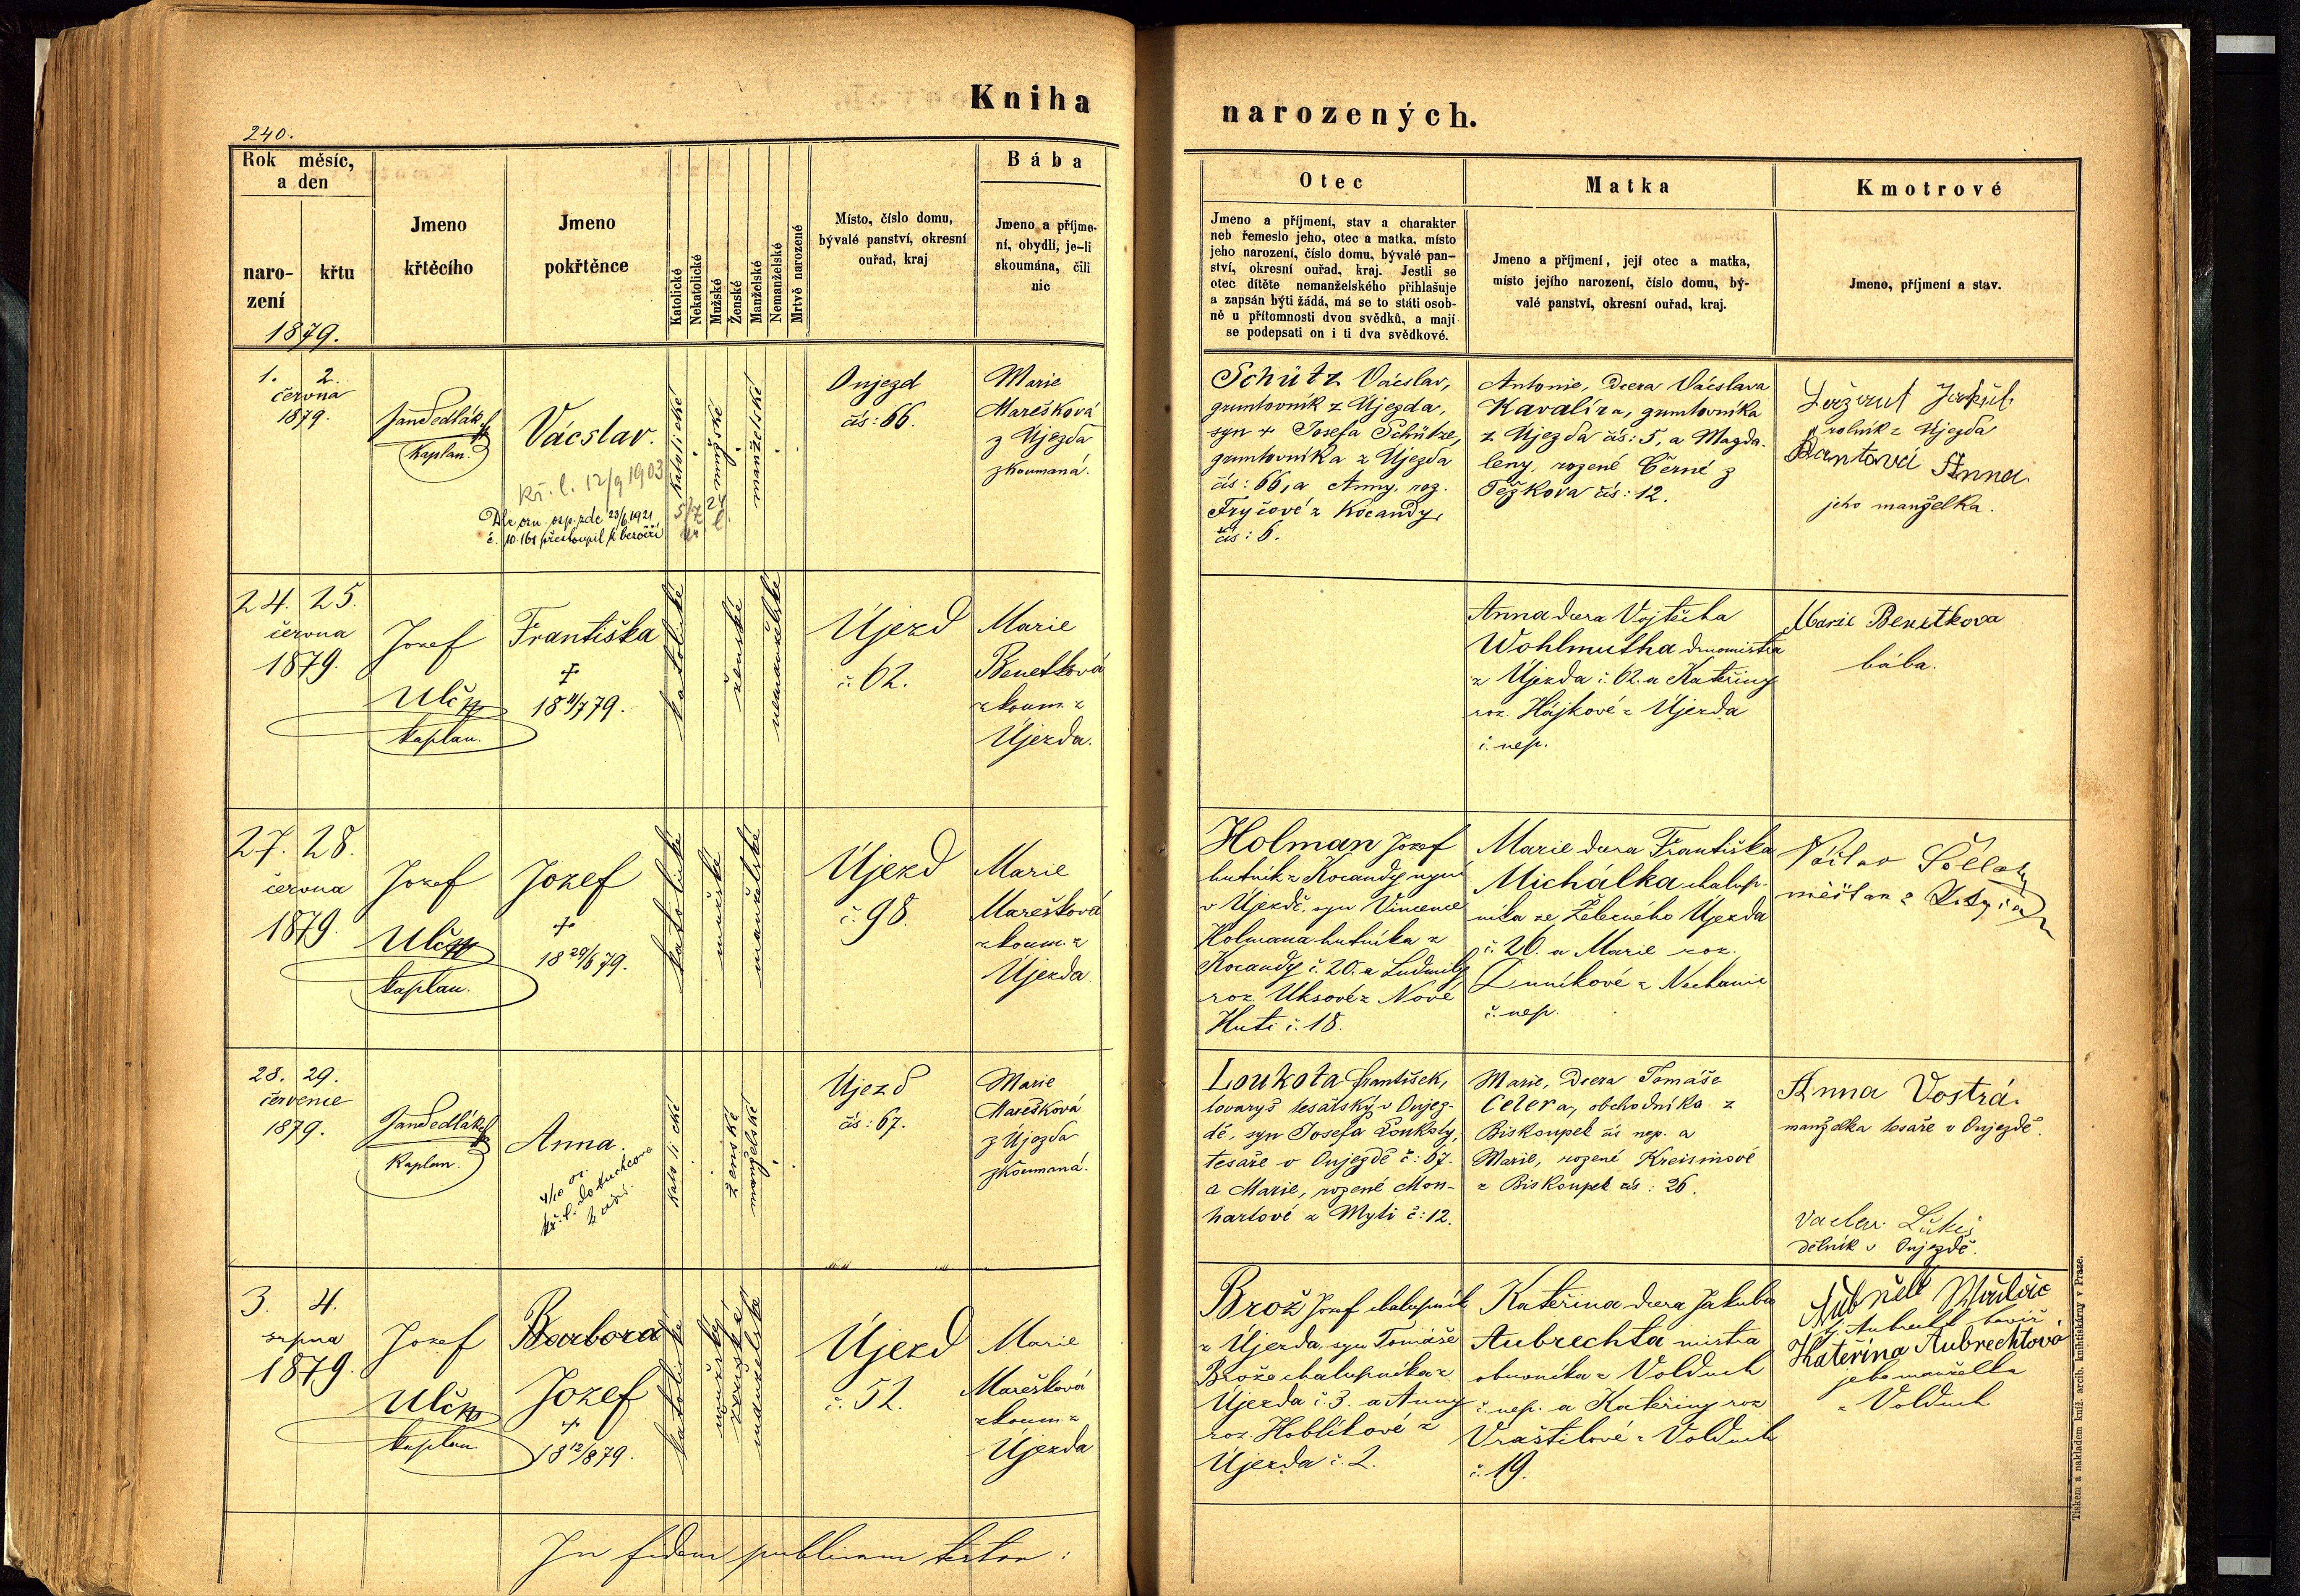 Kniha
narozených.
240.
Rok měsíc,
a den
naro-
zení
křtu
1879.
Jmeno
křtěcího
Jmeno
pokřtěnce
Katolické
Nekatolické
Mužské
Ženské
Manželské
Nemanželské
Mrtvě narozené
Místo, číslo domu,
bývalé panství, okresní
ouřad, kraj
Bába
Jmeno a příjme-
ní, obydlí, je-li
skoumána, čili
nic
Otec
Jmeno a příjmení, stav a charakter
neb řemeslo jeho, otec a matka, místo
jeho narození, číslo domu, bývalé pan-
ství, okresní ouřad, kraj. Jestli se
otec dítěte nemanželského přihlašuje
a zapsán býti žádá, má se to státi osob-
ně u přítomnosti dvou svědků, a mají
se podepsati on i ti dva svědkové.
Matka
Jmeno a příjmení, její otec a matka,
místo jejího narození, číslo domu, bý-
valé panství, okresní ouřad, kraj.
Kmotrové
Jmeno, příjmení a stav.
1. 2.
června
1879.
Jan Sedlák
Kaplan.
Václav.
kř. l. 12/9 1903
23/6 1921
č. 10.161 přestoupil k bezvěří
katolické
mužské
manželské
Oujezd
čís: 66.
Marie
Marešková
z Újezda
zkoumaná.
Schütz Václav,
gruntovník z Újezda,
syn + Josefa Schütze,
gruntovníka z Újezda
čís: 66, a Anny, roz.
Fryčové z Kocandy,
čís: 6.
Antonie, dcera Václava
Kavalíra, gruntovníka
z Újezda čís: 5, a Magda-
leny, rozené Černé z
Těžkova čís: 12.
rolník z Újezda
Anna
jeho manželka.
24. 25.
června
1879.
Josef
Ulč
kaplan.
Františka
+
18 11/7 79.
katolické
ženské
nemanželské
Újezd
č. 62.
Marie
Benetková
zkoum. z
Újezda.
Anna dcera Vojtěcha
Wohlmutha
z Újezda č. 62. a Kateřiny
roz. Hájkové z Újezda
č. nep.
Marie Benetkova
bába.
27. 28.
června
1879.
Josef
Ulč
kaplan.
Josef
+
18 29/6 79.
katolické
mužské
manželské
Újezd
č. 98.
Marie
Marešková
zkoum. z
Újezda
Holman Josef
hutník z Kocandy nyní
v Újezdě, syn Vincence
Holmana hutníka z
Kocandy č. 20. a Ludmily
roz. Uksové z Nové
Huti č. 18.
Marie dcera Františka
Michálka chalup-
níka ze Železného Újezda
č. 26. a Marie roz.
z Nechanic
č. nep.
měšťan z
28. 29.
července
1879.
Jan Sedlák
Kaplan.
Anna.
katolické
ženské
manželské
Újezd
čís: 67.
Marie
Marešková
z Újezda
zkoumaná.
Loukota František,
tovaryš tesařský v Oujez-
dě, syn Josefa Loukoty,
tesaře v Oujezdě č: 67.
a Marie, rozené Mon-
hartové z Mýti č: 12.
Marie, dcera Tomáše
Celera, obchodníka z
Biskoupek čís nep. a
Marie, rozené Kreisinové
z Biskoupek čís: 26.
Anna Vostrá.
manželka tesaře v Oujezdě.
dělník v Oujezdě.
3. 4.
srpna
1879.
Josef
Ulč
kaplan
Barbora
Josef
+
18 12/8 79.
katolické
mužský
ženské
manželské
Újezd
č. 52.
Marie
Marešková
zkoum. z
Újezda
Brož Josef chalupník
z Újezda, syn Tomáše
Brože chalupníka z
Újezda č. 3. a Anny
roz. Hoblíkové z
Újezda č. 2.
Kateřina dcera Jakuba
Aubrechta mistra
obuvníka z Volduch
č. nep. a Kateřiny roz
Vraštilové z Volduch
č. 19.
Kateřina Aubrechtová
jeho manželka
z Volduch
In fidem publicam testor:
Tiskem a nakladem kníž. arcib. knihtiskárny v Praze.